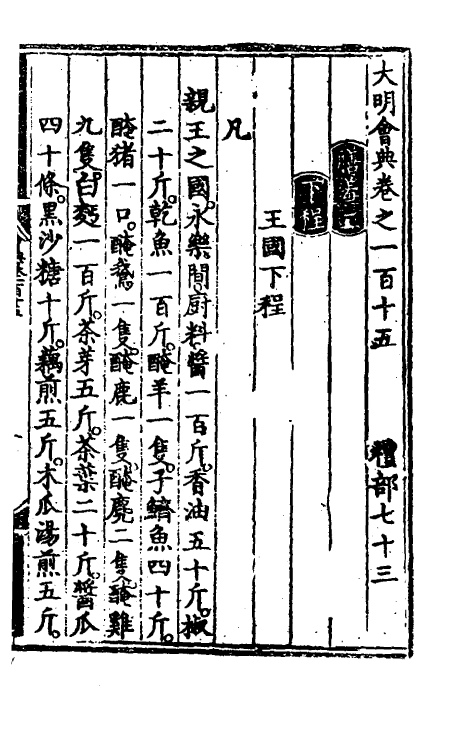 大明會典卷之一百十五 禮部七十三
膳羞二
下程
王國下程
凡
親王之國。永樂間。厨料醬一百斤。香油五十斤。椒
二十斤。乾魚一百斤。醃羊一隻。子鱭魚四十斤。
醃猪一口。醃鵞一隻。醃鹿一隻。醃麂二隻。醃雞
九隻。白麪一百斤。茶芽五斤。茶葉二十斤。醬瓜
四十條。黑沙糖十斤。藕煎五斤。木瓜湯煎五斤。